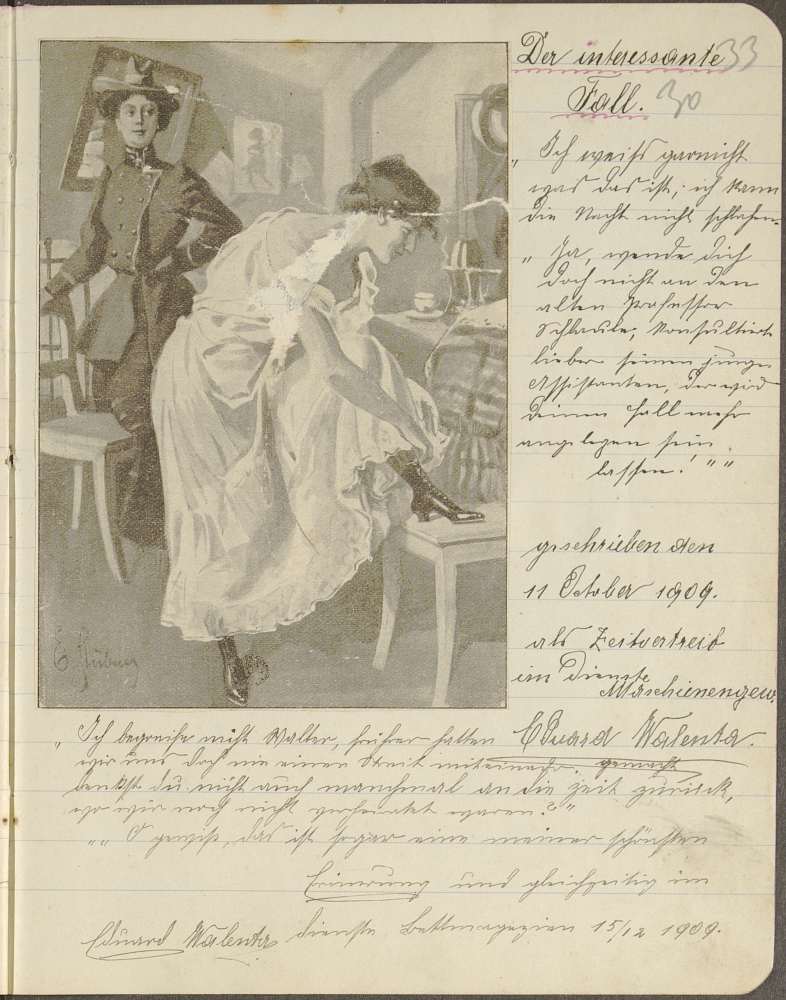 Der interessante 33
Fall. 30
„Ich weiß garnicht
was das ist, ich kann
die Nacht nicht schlafen.
„Ja, wende dich
doch nicht an den
alten Professor
Schlaule, konsultiert
lieber seinen junge
Assistenten, der wird
deinen Fall mehr
angelegen sein
lassen!""
geschrieben den
11 October 1909.
als Zeitvertreib
im Dienste
Maschienengew.
Eduard Walenta.
„Ich begreife nicht Walter, früher hatten
wir uns doch nie einen Streit miteinader gemacht
denkst du nicht auch manchmal an die zeit zurück,
wo wir noch nicht verheiratet waren?"
„„O gewiß, das ist sogar eine meiner schönsten
Erinerung und gleichzeitig im
Eduard Walenta dienste Bettmagazien 15/12 1909.
E. Hübner